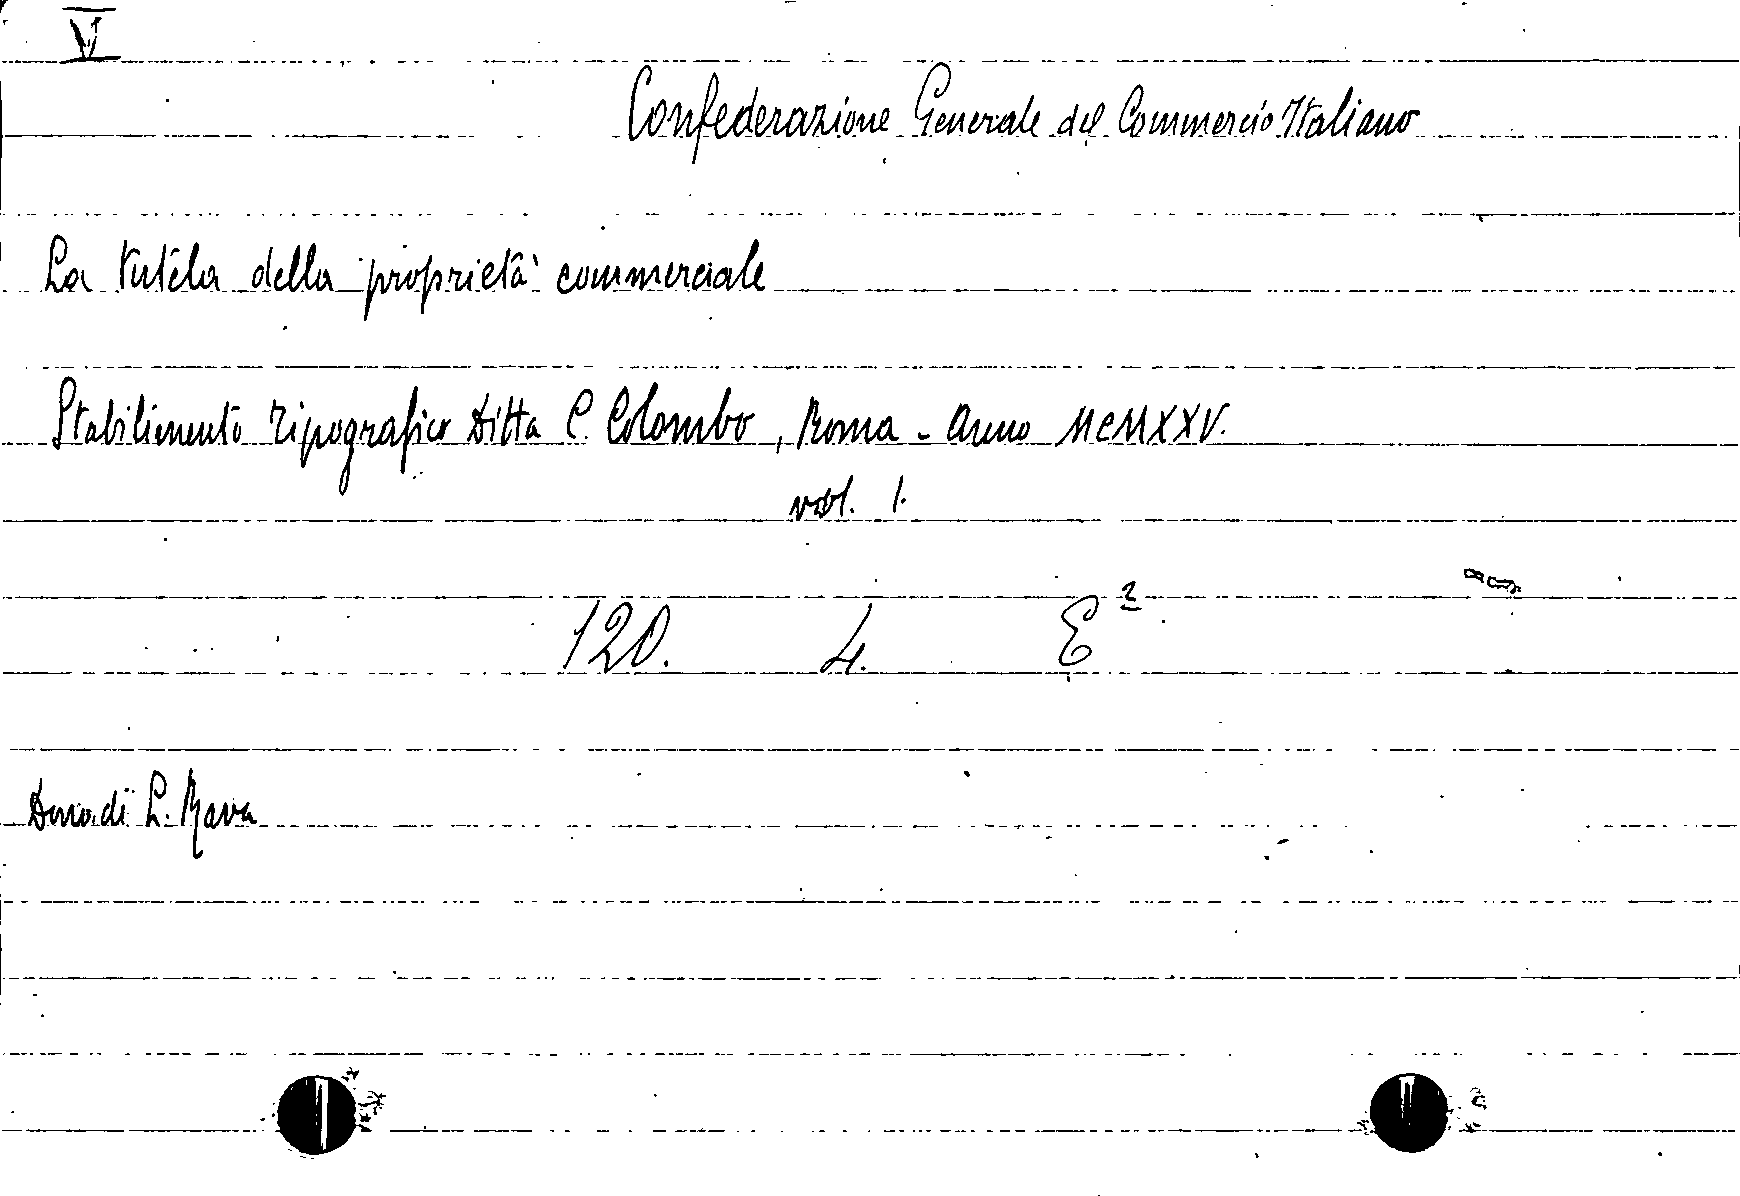 V
Confederazione Generale del Commercio Italiano
La tutela della proprietà commerciale
Stabilimento Tipografico Ditta C. Colombo, Roma - Anno MCMXXV.
vol. 1.
120. 4. E²
Dono di L. Rava